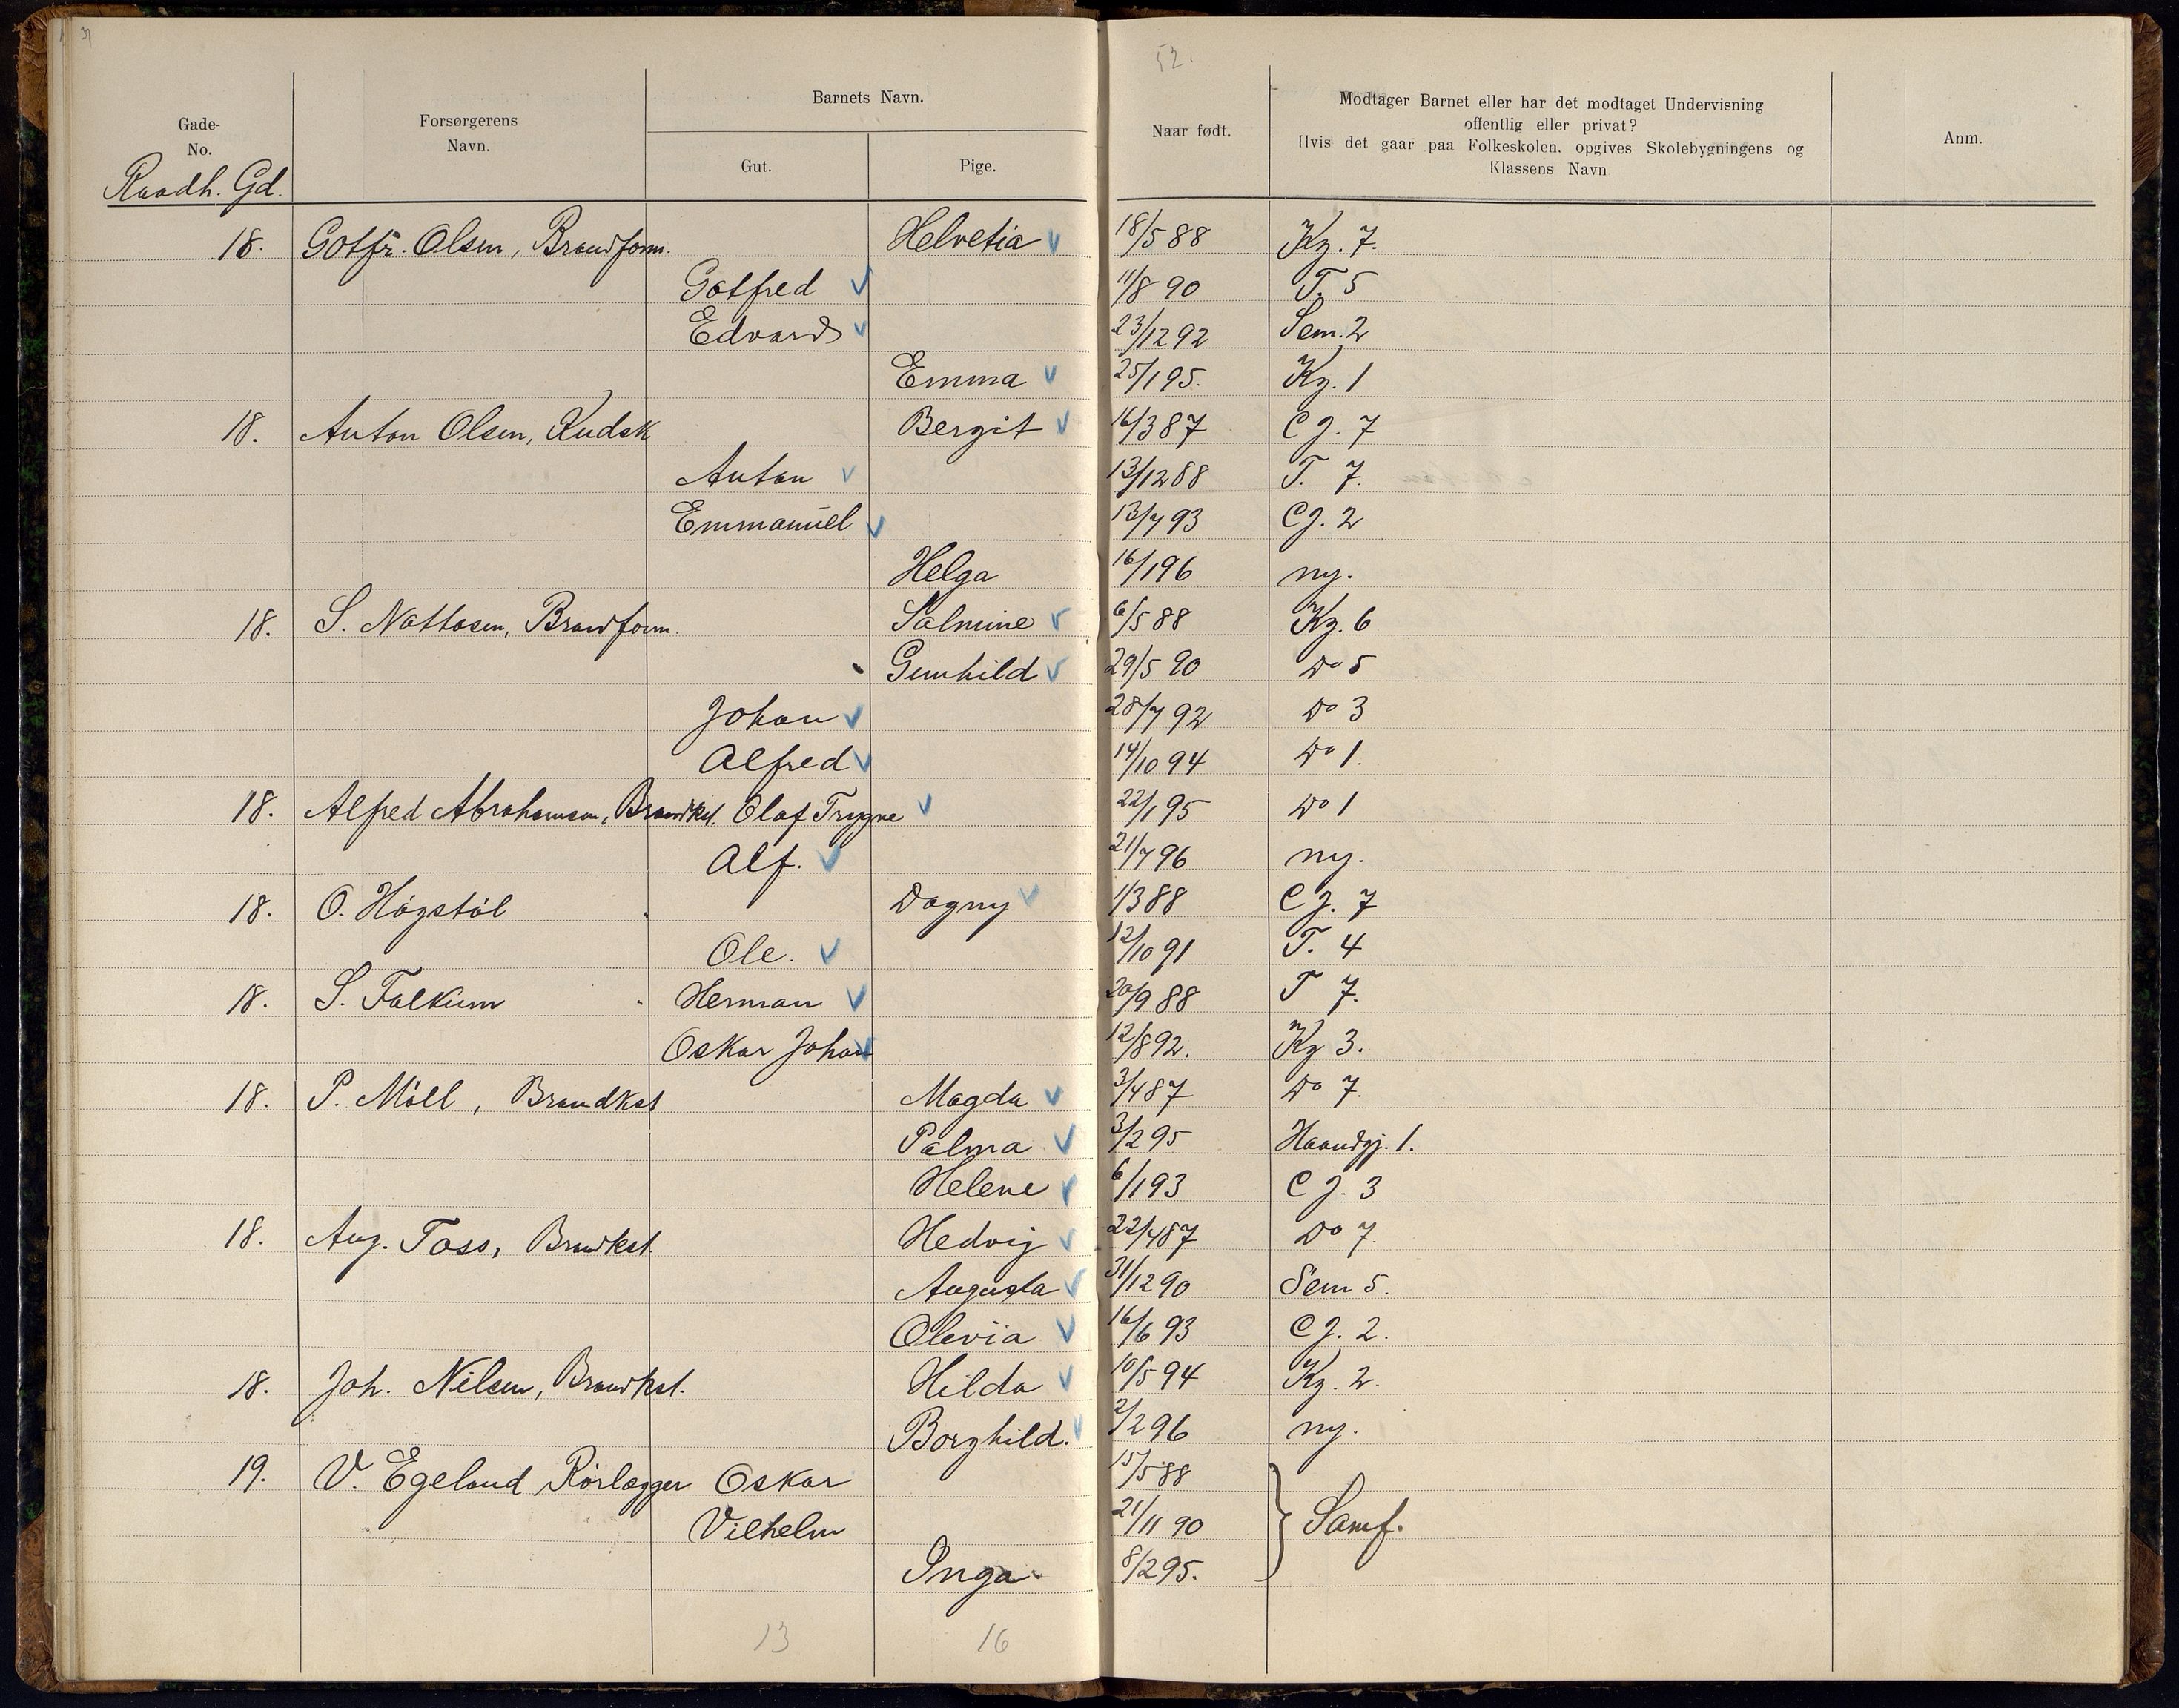 52.
Gade-
No.
Forsørgerens
Navn.
Barnets Navn.
Gut.
Pige.
Naar født.
Modtager Barnet eller har det modtaget Undervisning
offentlig eller privat?
Hvis det gaar paa Folkeskolen, opgives Skolebygningens og
Klassens Navn
Anm.
Raadh. Gd.
18. Gotfr. Olsen, Brandform. Helvetia 18/5 88 Kg. 7.
Gotfred 11/8 90 T. 5
Edvard 23/12 92 Sem. 2
Emma 25/1 95. Kg. 1
18. Anton Olsen, Kudsk Bergit 16/3 87 C J. 7
Anton 13/12 88 T. 7.
Emmanuel 13/7 93 C J. 2
Helga 16/1 96 ny.
18. S. Nattosen, Brandform. Salmine 6/5 88 Kg. 6
Gunhild 29/5 90 Do 5
Johan 28/7 92 Do 3
Alfred 14/10 94 Do 1.
18. Alfred Abrahamsen, Brandkst. Olaf Trygve 22/1 95 Do 1
Alf. 21/7 96 ny.
18. O. Högstöl " Dagny 1/3 88 C J. 7
Ole. 12/10 91 T. 4
18. S. Falkum " Herman 20/9 88 T 7.
Oskar Johan 12/8 92. Kg 3.
18. P. Möll, Brandkst Magda 3/4 87 Do 7.
Palma 3/2 95 Haandgj. 1.
Helene 6/1 93 C J. 3
18. Aug. Tass, Brandkst. Hedvig 22/4 87 Do 7.
Augusta 31/12 90 Sem 5.
Olevia 16/6 93 C J. 2.
18. Joh. Nilsen, Brandkst. Hilda 10/5 94 Kg. 2.
Borghild. 2/2 96 ny.
19. V. Egeland Rörlægger Oskar 15/5 88
Vilhelm 21/11 90 } Samf.
Inga 8/2 95.
13 16